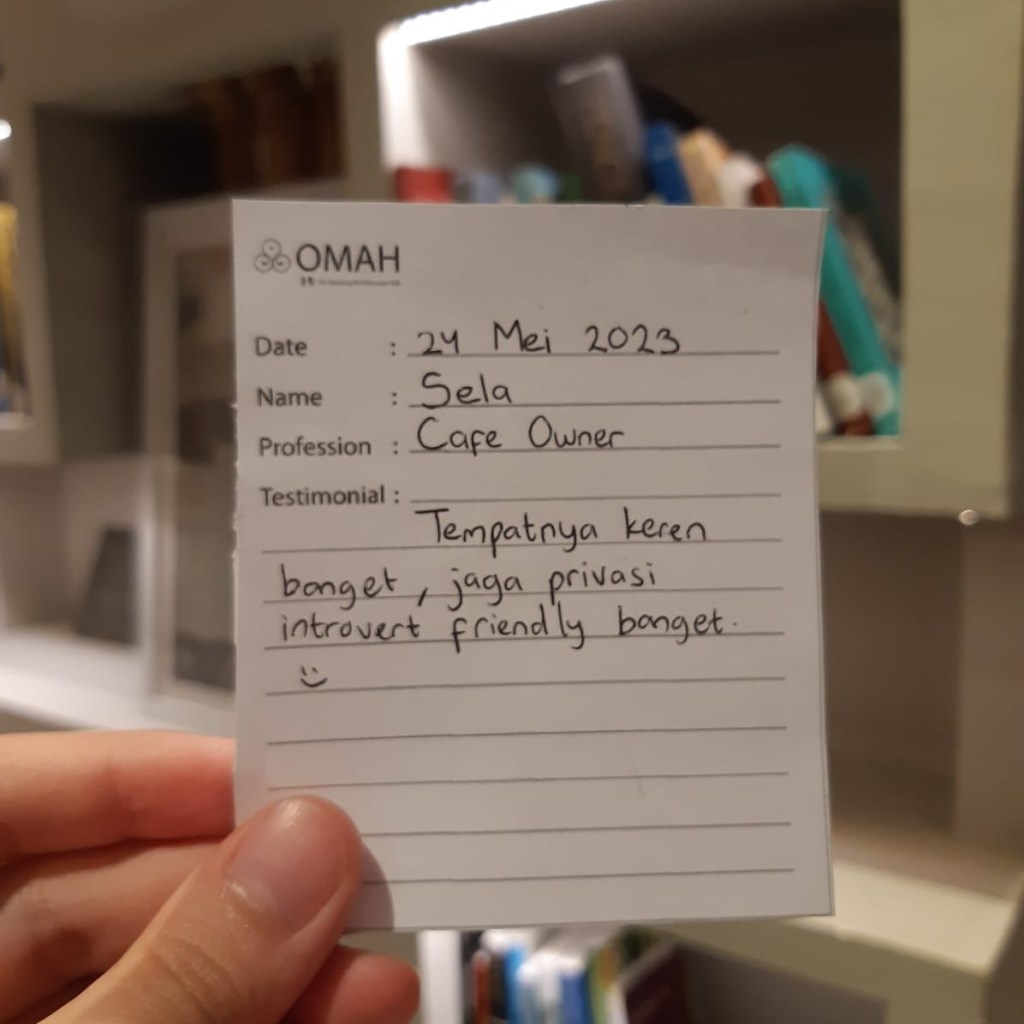 OMAH
Date : 24 Mei 2023
Name : Sela
Profession : Cafe Owner
Testimonial :
Tempatnya keren
banget, jaga privasi
introvert friendly banget.